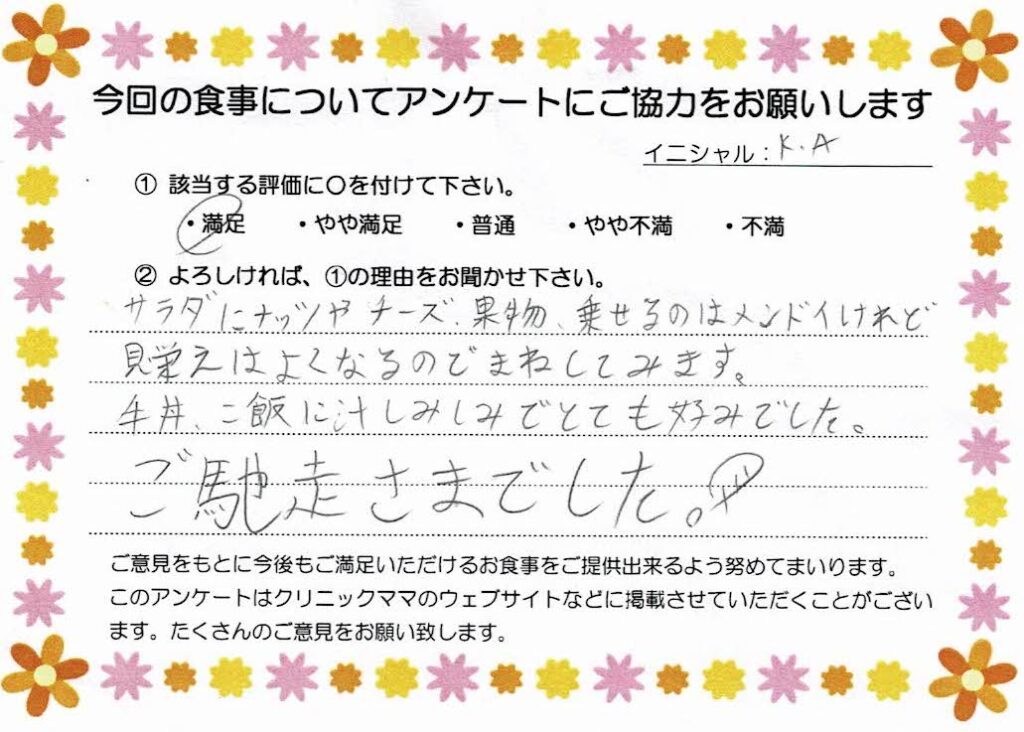 今回の食事についてアンケートにご協力をお願いします
イニシャル：K.A
① 該当する評価に〇を付けて下さい。
・満足 ・やや満足 ・普通 ・やや不満 ・不満
② よろしければ、①の理由をお聞かせ下さい。
サラダにナッツやチーズ、果物、乗せるのはメンドイけれど
見栄えはよくなるのでまねしてみます。
牛丼、ご飯に汁しみしみでとても好みでした。
ご馳走さまでした。
ご意見をもとに今後もご満足いただけるお食事をご提供出来るよう努めてまいります。
このアンケートはクリニックママのウェブサイトなどに掲載させていただくことがござい
ます。たくさんのご意見をお願い致します。